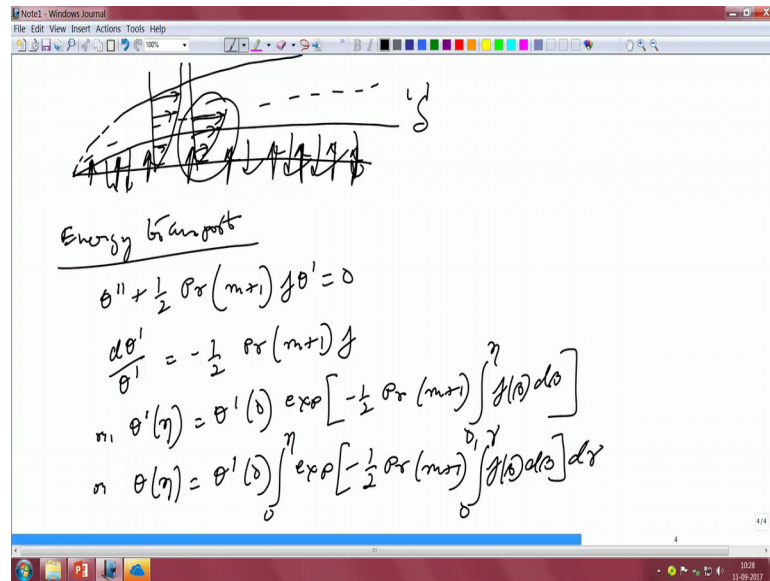 Note1 - Windows Journal
File Edit View Insert Actions Tools Help
100%
B I
δ
Energy transport
θ'' + 1/2 Pr (m+1) f θ' = 0
dθ'/θ' = -1/2 Pr (m+1) f
or, θ'(η) = θ'(0) exp[-1/2 Pr (m+1) ∫₀^η f(β) dβ]
or θ(η) = θ'(0) ∫₀^η exp[-1/2 Pr (m+1) ∫₀^γ f(β) dβ] dγ
4/4
4
10:28
11-09-2017